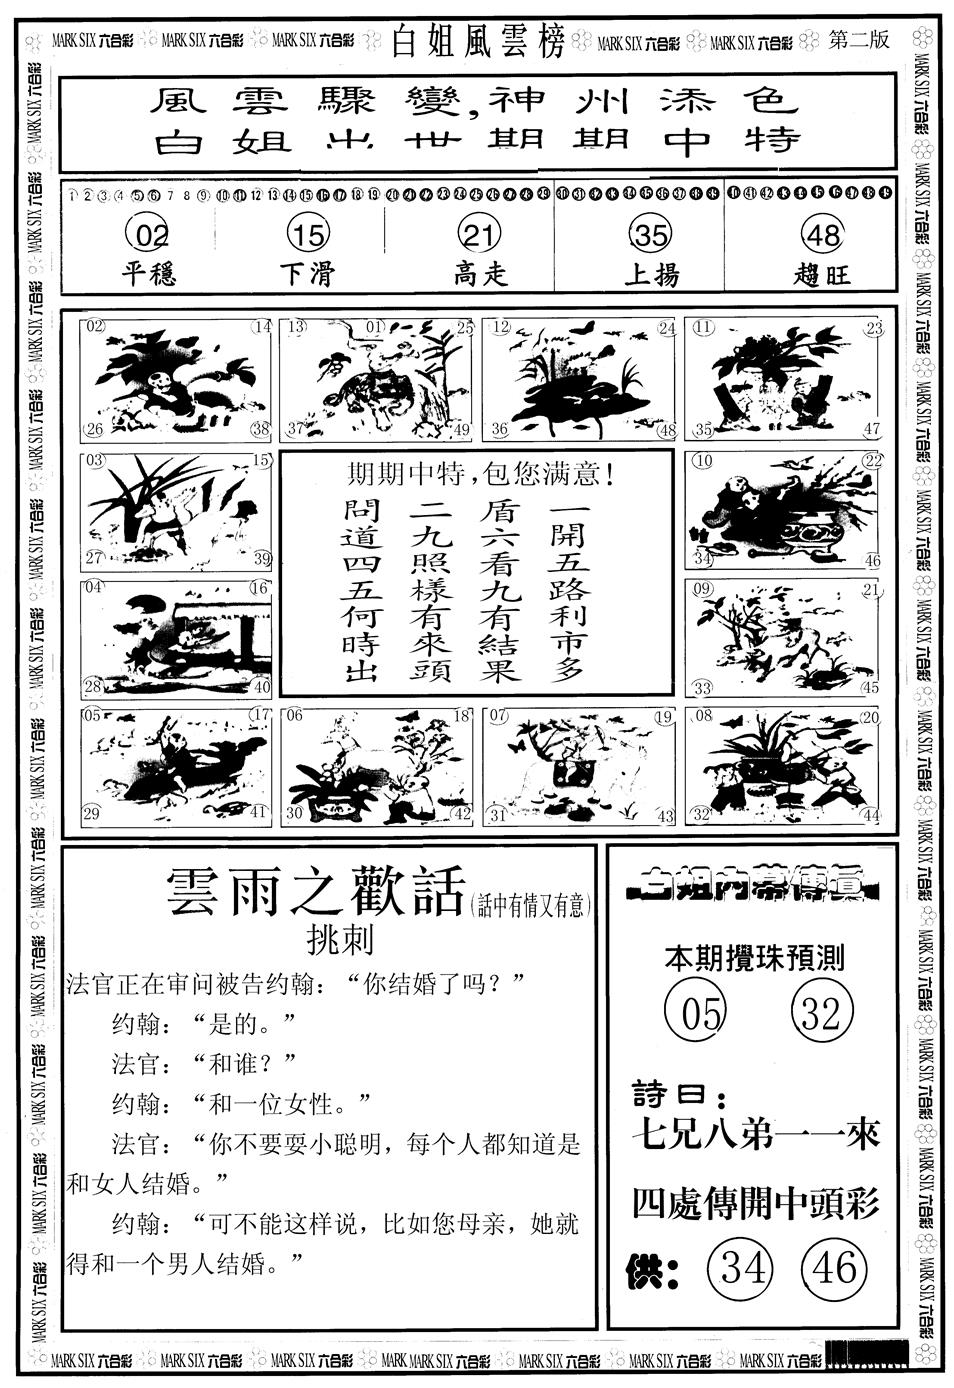 MARK SIX 六合彩 MARK SIX 六合彩 MARK SIX 六合彩 白姐風雲榜 MARK SIX 六合彩 MARK SIX 六合彩 第二版
風雲驟變,神州添色
白姐出世期期中特
1 2 3 4 5 6 7 8 9 10 11 12 13 14 15 16 17 18 19 20 21 22 23 24 25 26 27 28 29 30 31 32 33 34 35 36 37 38 39 40 41 42 43 44 45 46 47 48 49
02 15 21 35 48
平穩 下滑 高走 上揚 趨旺
02 14 13 01 25 12 24 11 23
26 38 37 49 36 48 35 47
03 15
27 39
04 16
28 40
期期中特,包您满意!
一開五路利市多
盾六看九有結果
二九照樣有來頭
問道四五何時出
10 22
34 46
09 21
33 45
05 17 06 18 07 19 08 20
29 41 30 42 31 43 32 44
雲雨之歡話(話中有情又有意)
挑刺
法官正在审问被告约翰：“你结婚了吗？”
约翰：“是的。”
法官：“和谁？”
约翰：“和一位女性。”
法官：“你不要耍小聪明，每个人都知道是
和女人结婚。”
约翰：“可不能这样说，比如您母亲，她就
得和一个男人结婚。”
白姐内幕傳真
本期攪珠預測
05 32
詩曰：
七兄八弟一一來
四處傳開中頭彩
供： 34 46
MARK SIX 六合彩 MARK SIX 六合彩 MARK SIX 六合彩 MARK MARK SIX 六合彩 MARK SIX 六合彩 MARK SIX 六合彩 MARK SIX 六合彩